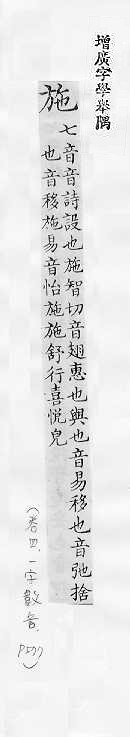 增廣字學舉隅
施
七音音詩設也施智切音翅惠也與也音易移也音弛捨
也音移施易音怡施施舒行喜悅皃
(卷四、一字數音、P577)